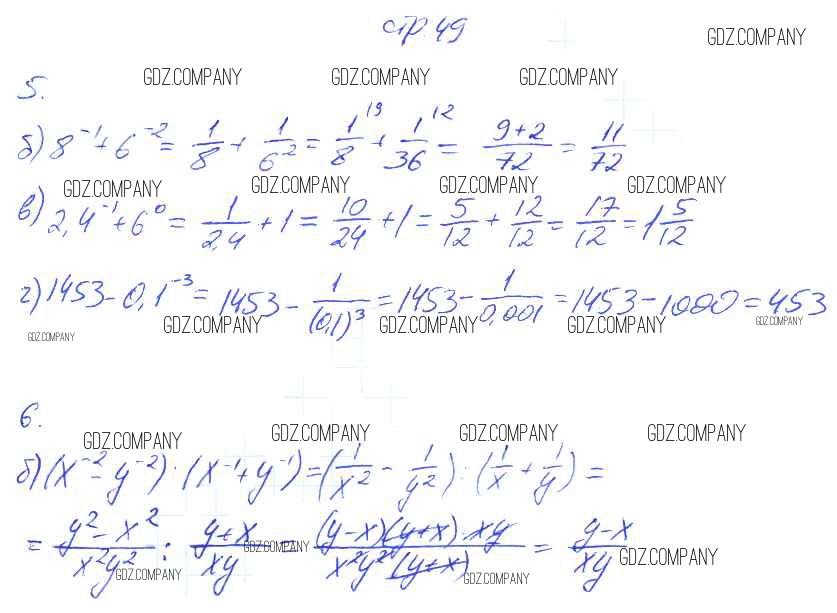 стр. 49
GDZ.COMPANY
5.
GDZ.COMPANY GDZ.COMPANY GDZ.COMPANY
б) 8⁻¹ + 6⁻² = 1/8 + 1/6² = 1/8 ^(19 + 1/36 ^(12 = (9+2)/72 = 11/72
GDZ.COMPANY GDZ.COMPANY GDZ.COMPANY GDZ.COMPANY
в) 2,4⁻¹ + 6⁰ = 1/2,4 + 1 = 10/24 + 1 = 5/12 + 12/12 = 17/12 = 1 5/12
г) 1453 - 0,1⁻³ = 1453 - 1/(0,1)³ = 1453 - 1/0,001 = 1453 - 1000 = 453
GDZ.COMPANY GDZ.COMPANY GDZ.COMPANY GDZ.COMPANY GDZ.COMPANY
6.
GDZ.COMPANY GDZ.COMPANY GDZ.COMPANY GDZ.COMPANY
б) (x⁻² - y⁻²) : (x⁻¹ + y⁻¹) = (1/x² - 1/y²) : (1/x + 1/y) =
= (y² - x²)/x²y² : (y+x)/xy = (y-x)(y+x)·xy/x²y²(y+x) = (y-x)/xy
GDZ.COMPANY GDZ.COMPANY GDZ.COMPANY GDZ.COMPANY